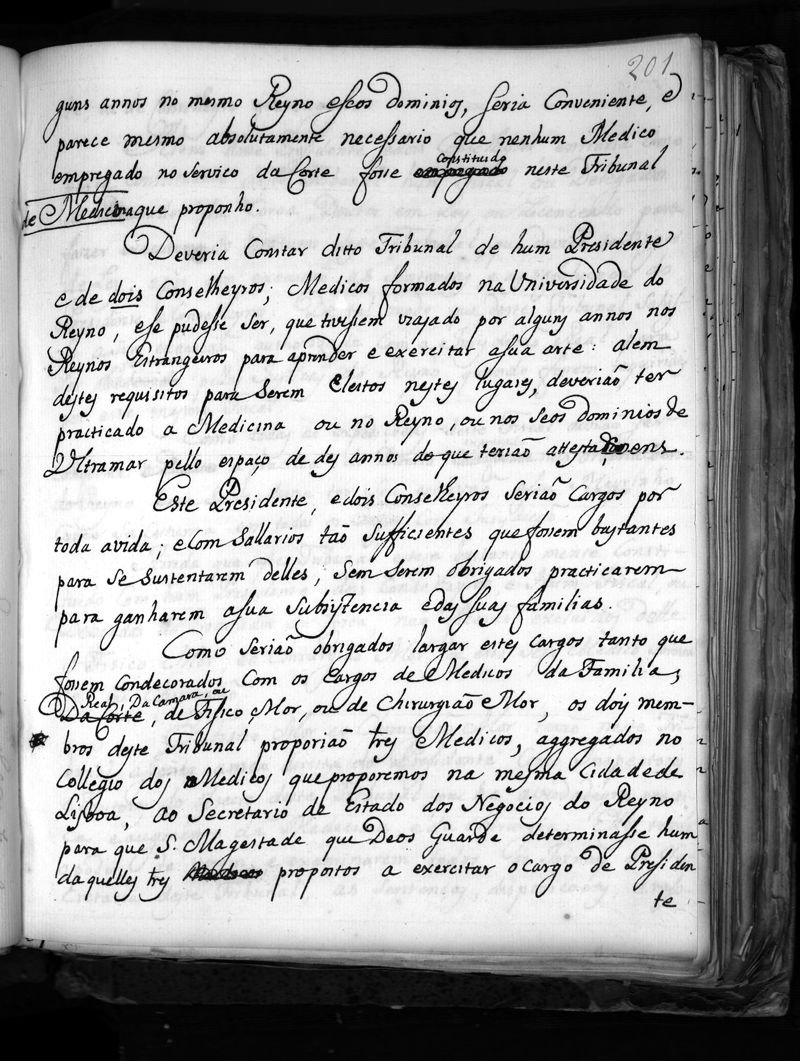 201
guns annos no mesmo Reyno eseos dominios, seria Conveniente, e
parece mesmo absolutamente necessario que nenhum Medico
Constituido
empregado no serviço da Corte fosse empregado neste Tribunal
de Medicina que proponho.
Deveria Constar ditto Tribunal de hum Presidente
e de dois Conselheyros; Medicos formados na Universidade do
Reyno, ese pudesse ser, que tivessem viajado por alguns annos nos
Reynos Estrangeiros para aprinder e exercitar asua arte: alem
destes requisitos para serem Eleitos nestes lugares, deveriaõ ter
practicado a Medicina ou no Reyno, ou nos seos dominios de
Ultramar pello espaço de des annos de que teriaõ attestaçoens.
Este Presidente, edois Conselheyros seriaõ Cargos por
toda avida; eCom Sallarios taõ sufficientes que fossem bastantes
para se sustentarem delles; sem serem obrigados practicarem
para ganharem asua subsistencia edas suas familias.
Como seriaõ obrigados largar estes cargos tanto que
fossem condecorados com os cargos de Medicos da Familia,
Real, Da Camara, ou
Da Corte, de Fisico Mor, ou de Chirurgiaõ Mor, os dois mem-
bros deste Tribunal proporiaõ tres Medicos, aggregados no
Collegio dos Medicos que proporemos na mesma Cidade de
Lisboa, ao Secretario de Estado dos Negocios do Reyno
para que S. Magestade que Deos Guarde determinasse hum
daquelles tres Medicos propostos a exercitar o cargo de Presiden
te